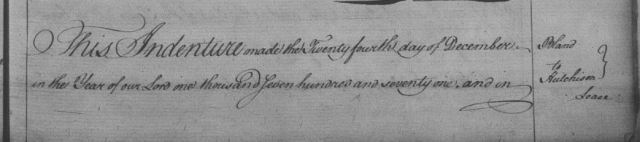 This Indenture made the Twenty fourth day of December
in the Year of our Lord one thousand Seven hundred and seventy one and in
Bland
to
Hutchison
Lease